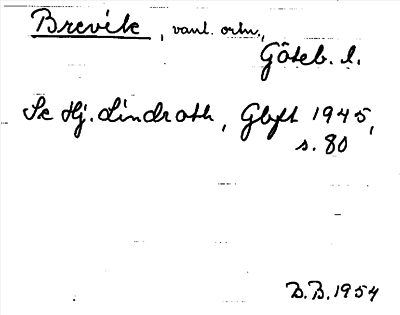 Brevik, vanl. ortn.,
Göteb. l.
Se Hj. Lindroth, Gbft 1945,
s. 80
B.B. 1954